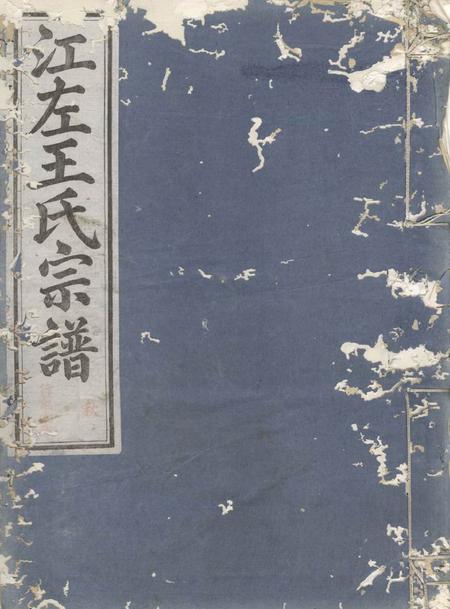 江左王氏宗譜